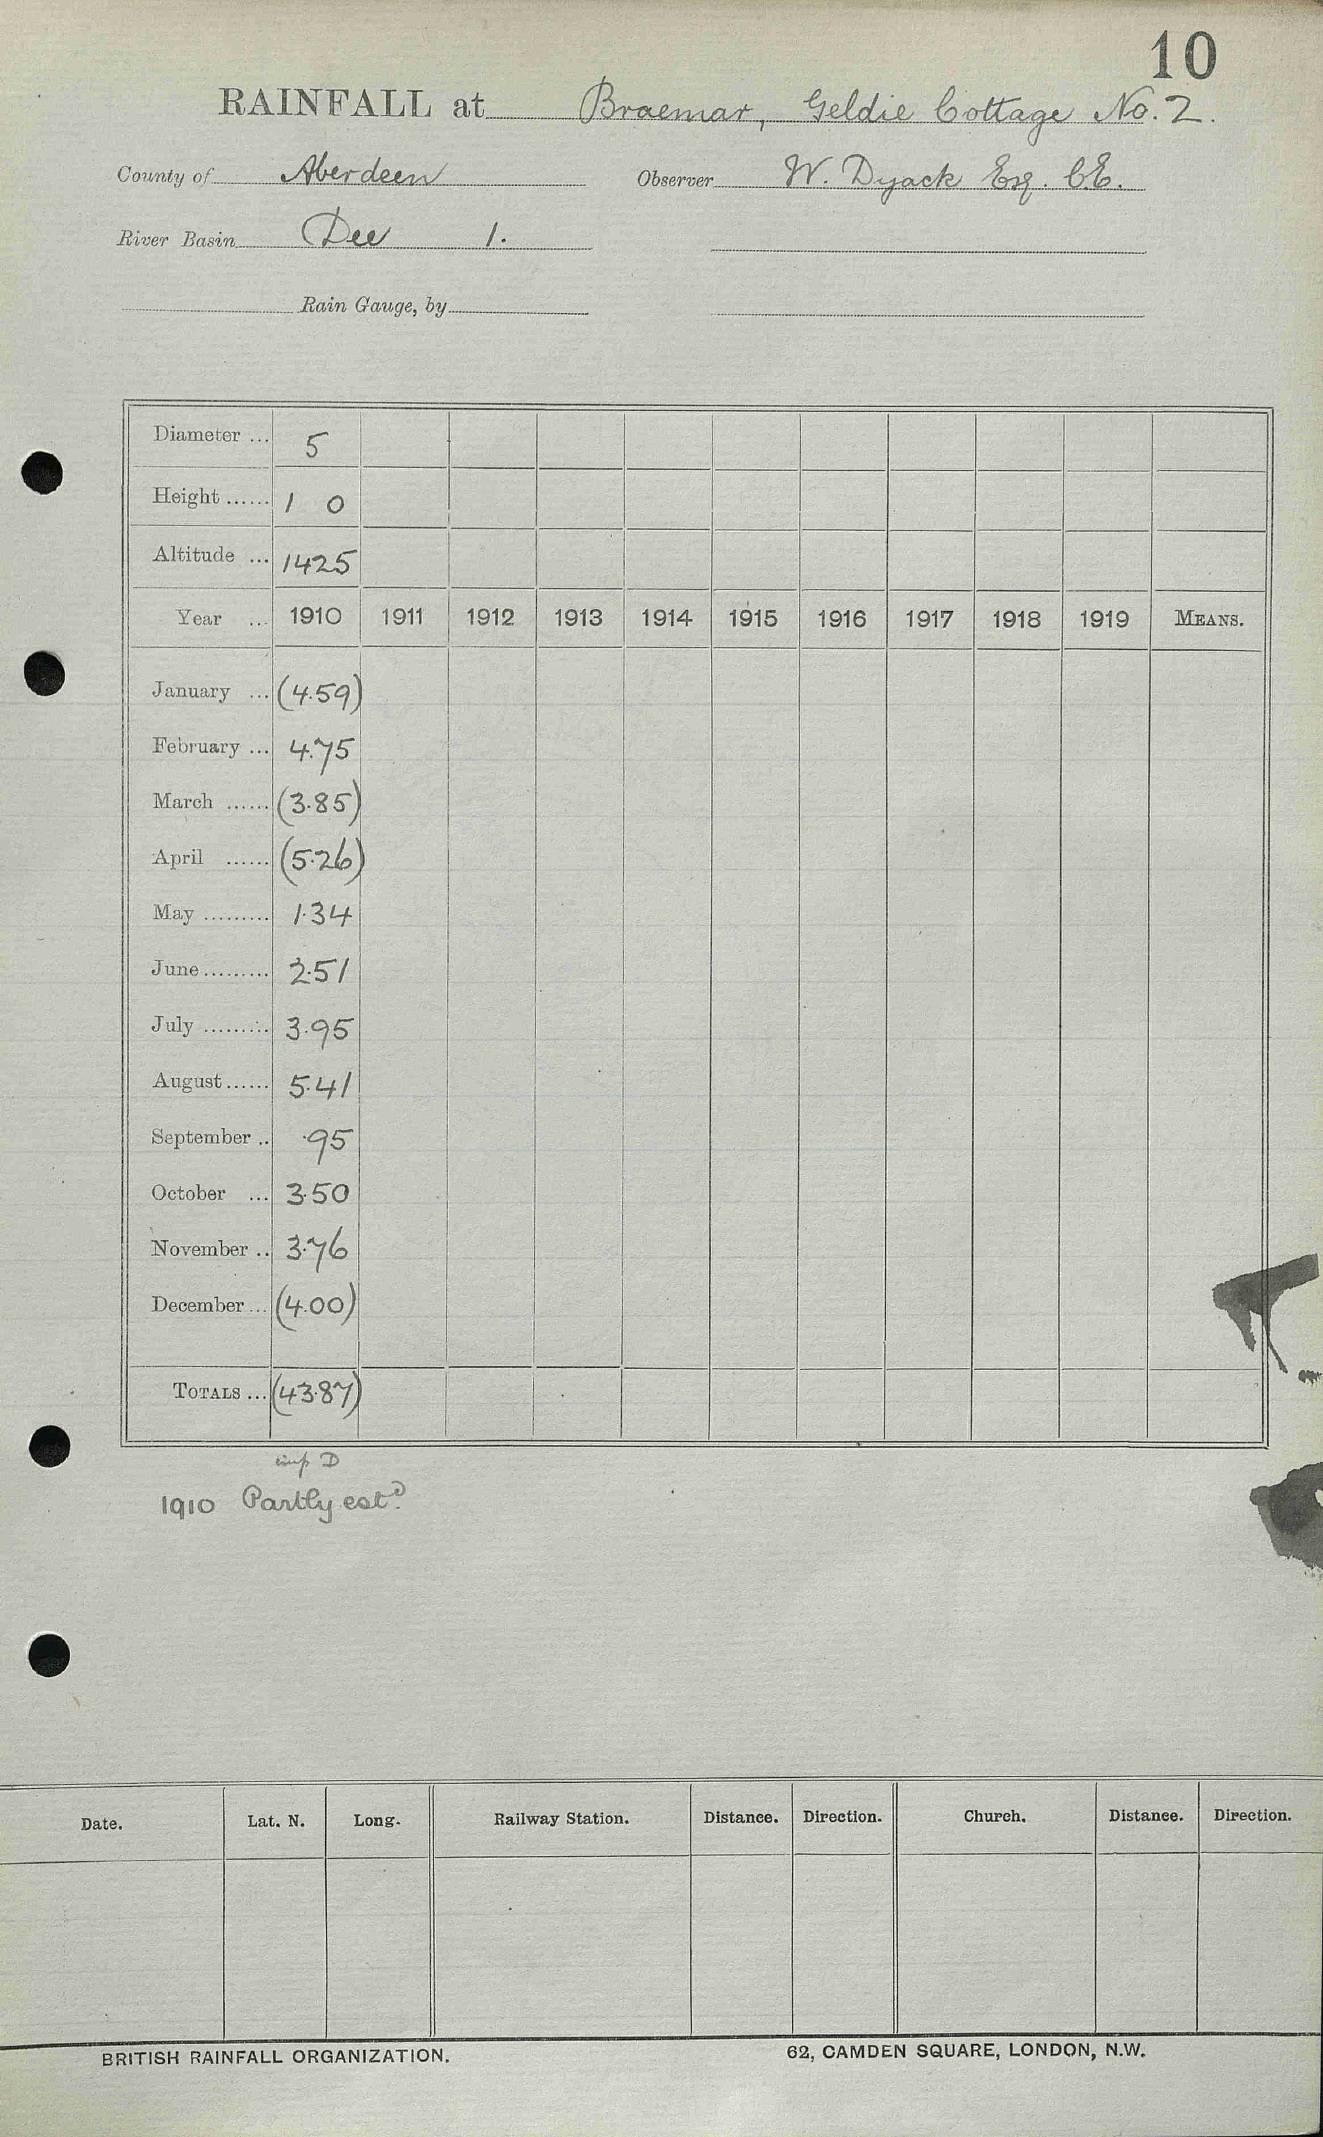 10
RAINFALL at Braemar, Geldie Cottage No. 2.
County of Aberdeen Observer W. Dyack Esq. C.E.
River Basin Dee 1.
Rain Gauge, by
Diameter ... 5
Height ...... 1 0
Altitude ... 1425
Year ... 1910 1911 1912 1913 1914 1915 1916 1917 1918 1919 MEANS.
January ... (4.59)
February ... 4.75
March ...... (3.85)
April ...... (5.26)
May ......... 1.34
June ......... 2.51
July ......... 3.95
August ...... 5.41
September .. .95
October ... 3.50
November .. 3.76
December ... (4.00)
TOTALS ... (43.87)
imp D
1910 Partly estd
Date. Lat. N. Long. Railway Station. Distance. Direction. Church. Distance. Direction.
BRITISH RAINFALL ORGANIZATION. 62, CAMDEN SQUARE, LONDON, N.W.